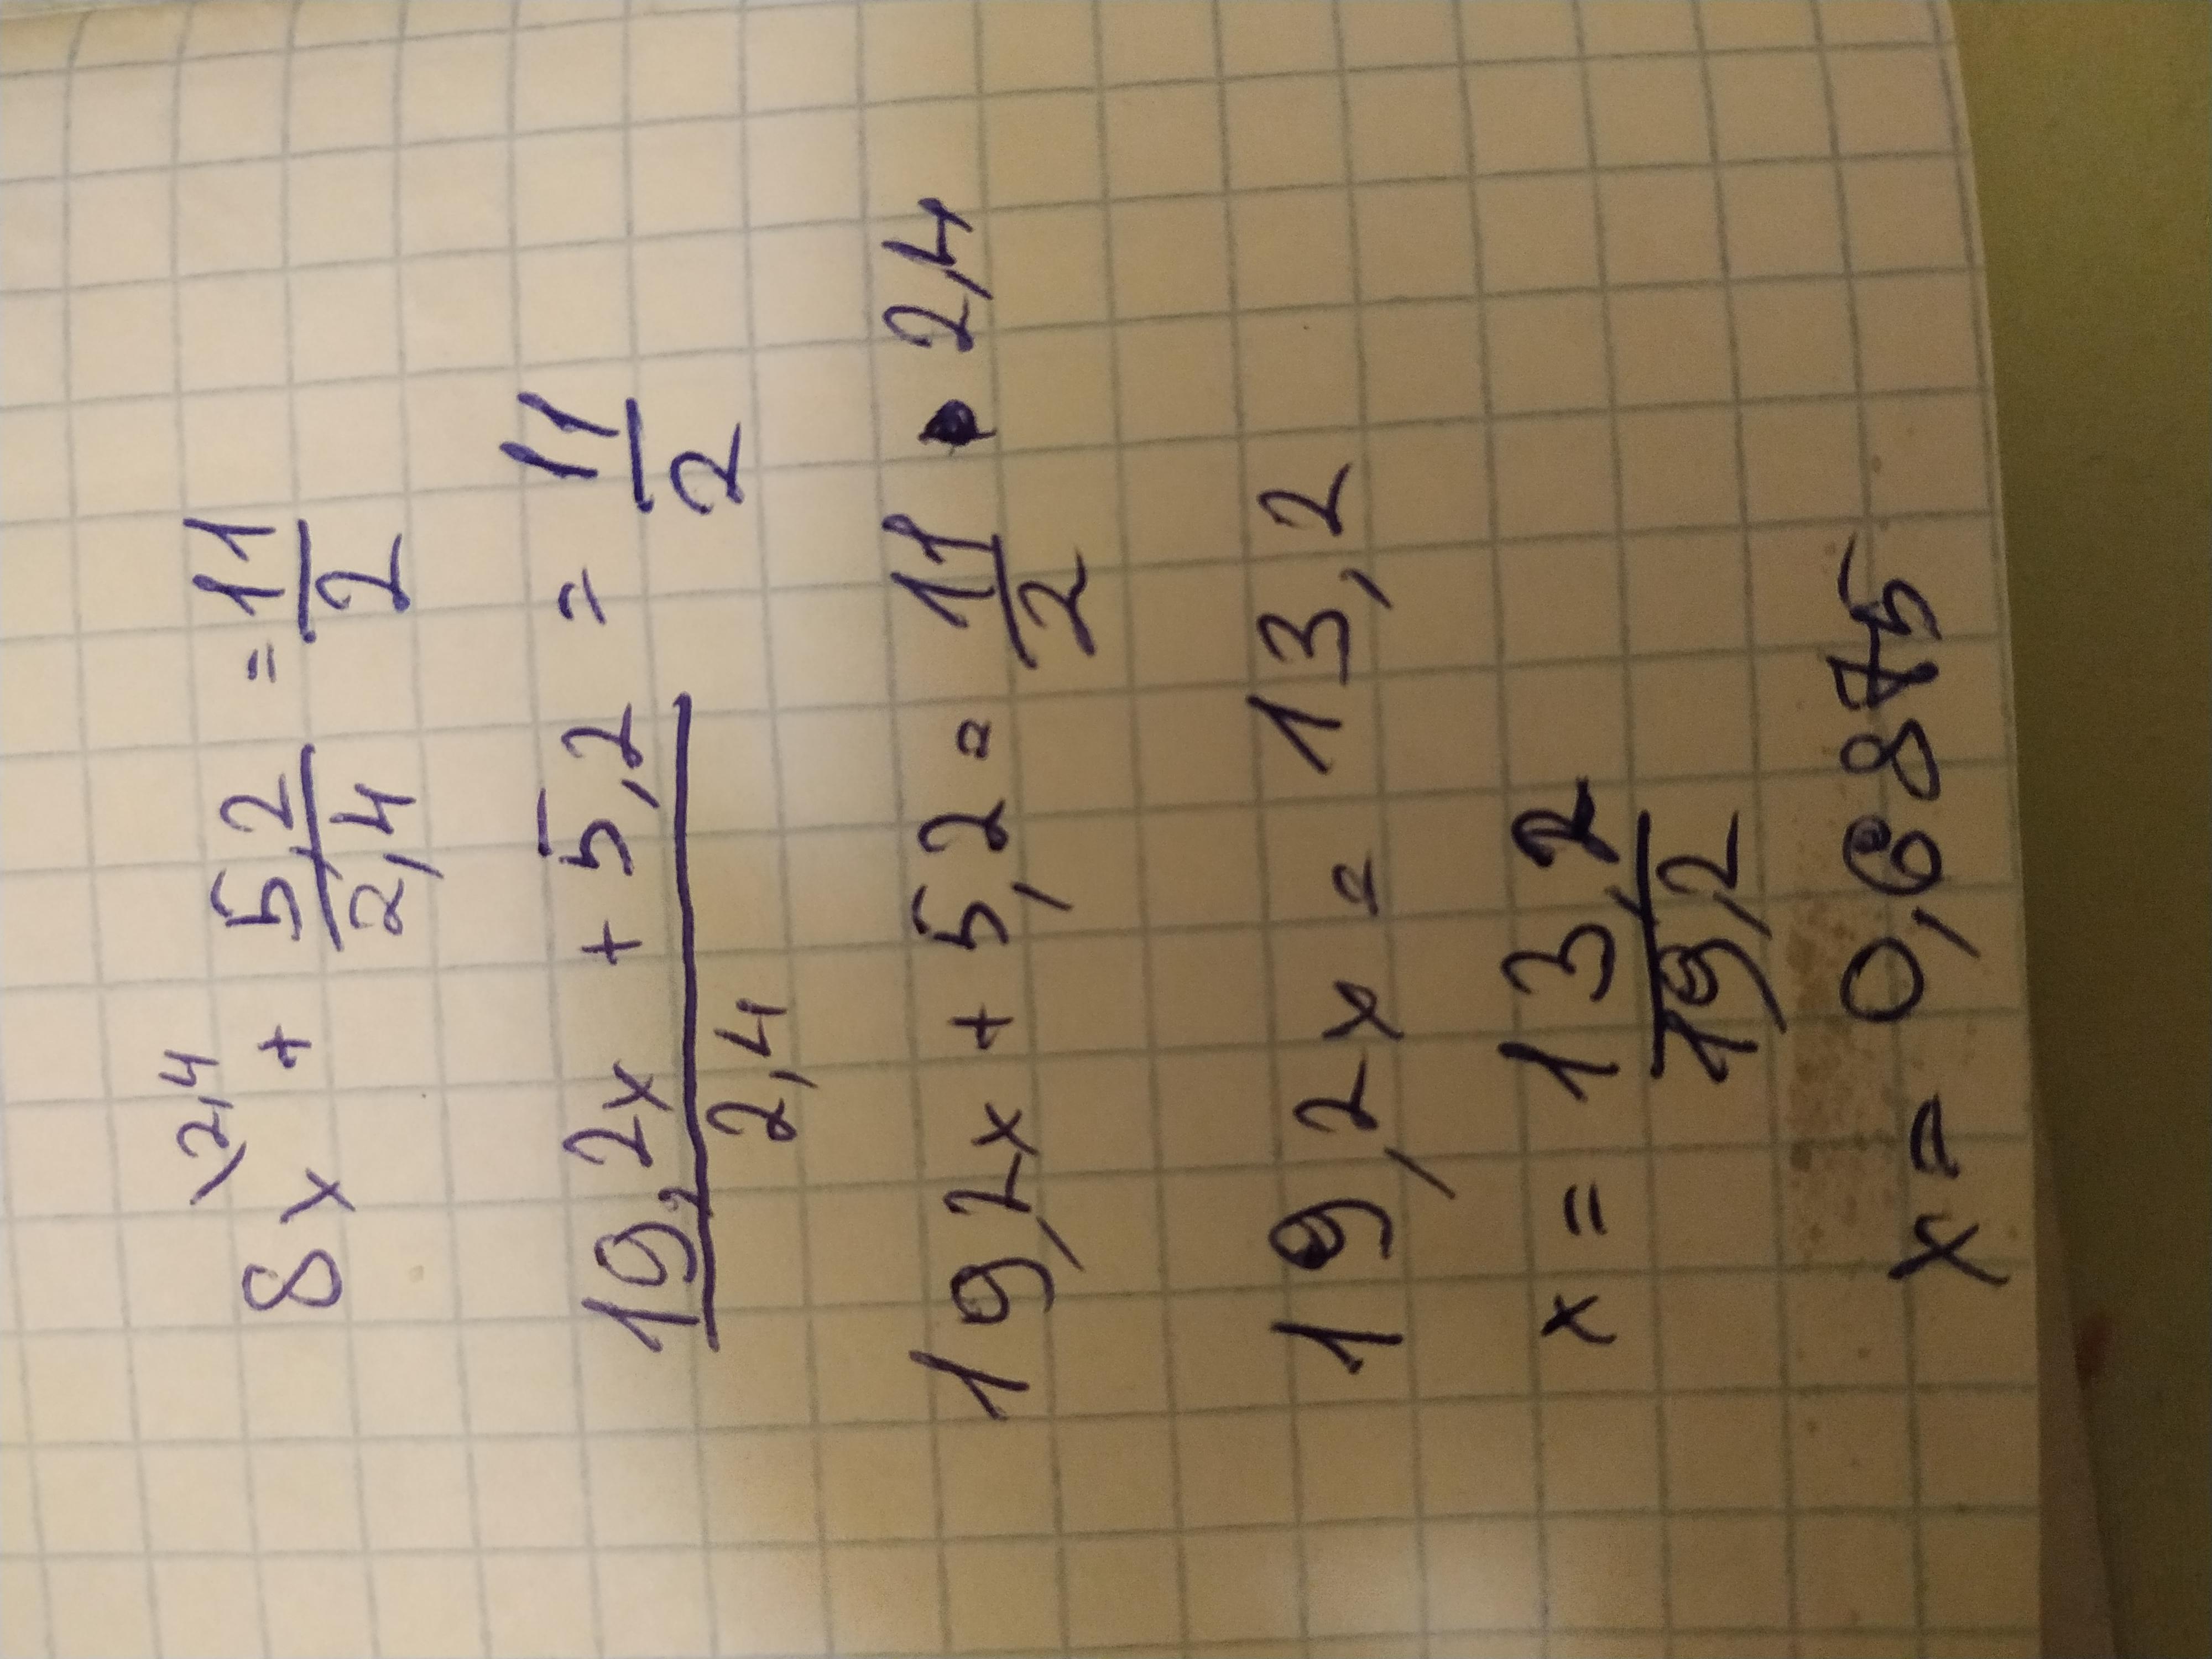 8x\2,4 + 5,2/2,4 = 11/2
19,2x + 5,2/2,4 = 11/2
19,2x + 5,2 = 11/2 • 2,4
19,2x = 13,2
x = 13,2/19,2
x = 0,6875